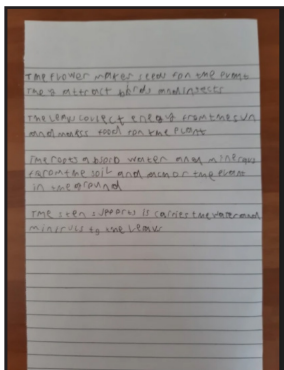 The Flower makes seeds for the Plant
They attract birds and insects
The Leaw collect energy from the sun
and makes food for the Plant
The roots absorb water and minerals
from the soil and anchor the Plant
in the ground
The stem supports is carries the water and
minirals to the Leaw